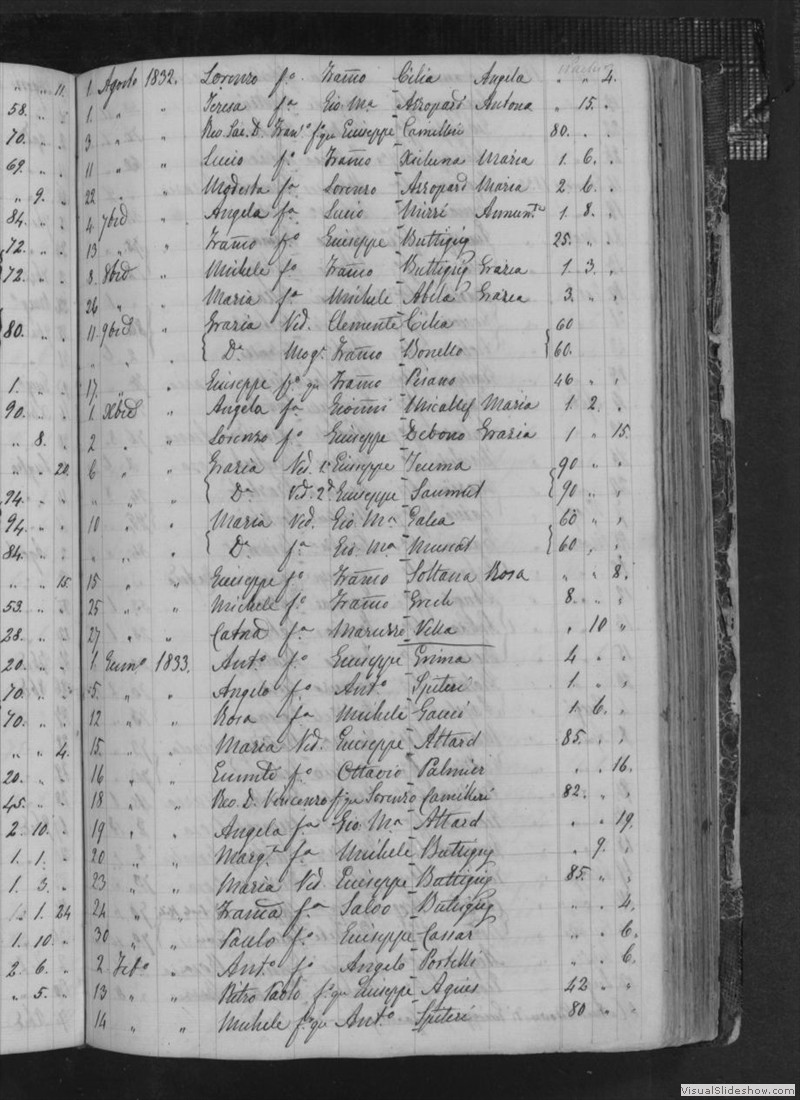 11. 1. Agosto 1832. Lorenzo fo. Franco Cilia Angela " " 4.
58. 1. " " Teresa fa Gio. Ma Azzopard Antona " 15. "
70. 3 " " Rev. Sac. D. Frano. fo qu Giuseppe Camilleri 80. " "
69. 11 " " Lucio fo. Franco Xiiluna Maria 1. 6. "
" 9. " 22 " " Modesta fa Lorenzo Azzopard Maria 2 6. "
84. " " 4 7brid " Angela fa Lucio Mizzi Annunta 1 8. "
72. " " 13 " " Franco fo Giuseppe Buttigig 25. " "
72. " " 8. 8brid " Michele fo Franco Buttigig Grazia 1 3. "
26 " " Maria fa Michele Abela Grazia 3. " "
80. " " 11. 9brid " Grazia Ved. Clemente Cilia 60
" " " Da Mogl. Franco Bonello 60.
1. " " 17. " " Giuseppe fo qu Franco Pisano 46 " "
90. " " 1. Xbrid " Angela fa Gioanni Micallef Maria 1 2. "
" 8. " 2 " " Lorenzo fo Giuseppe Debono Grazia 1 " 15.
" " 20. 6 " " Grazia Ved. 1a Giuseppe Teuma 90 " "
94. " " " " " Da Ved. 2da Giuseppe Saumut 90 " "
94. " " 10 " " Maria Ved. Gio. Ma Galea 60 " "
84. " " " " " Da fa Gio. Ma Muscat 60 " "
" " 15. 15 " " Giuseppe fo Franco Soltana Rosa " " 8.
53. " " 25 " " Michele fo. Franco Grech 8. " "
28. " " 27 " " Catna fa Maruzzo Villa " 10 "
20. " " 1. Genno. 1833. Anto. fo. Giuseppe Grima 4 " "
70. " " 5. " " Angelo fo Anto. Spiteri 1. " "
70. " " 12 " " Rosa fa Michele Gauci 1. 6. "
" " 4. 15. " " Maria Ved. Giuseppe Attard 85. " "
20. " " 16 " " fo. Ottavio Palmier " " 16.
45. " " 18 " " Rev. D. Vincenzo fo qu Lorenzo Camilleri 82. " "
2. 10. " 19 " " Angela fa Gio. Ma Attard " " 19.
1. 1. " 20 " " Marga. fa Michele Buttigig " 9. "
1. 3. " 23 " " Maria Ved. Giuseppe Buttigig 85. " "
1. 24 24 " " Franca fa Salvo Buttigig " " 4.
1. 10. " 30 " " Paulo fo. Giuseppe Cassar " " 6.
2. 6. " 2 Febo. " Anto. fo Angelo Portelli " " 6.
" 5. " 13 " " Pietro Paolo fo qu Giuseppe Agius 42 " "
14 " " Michele fo qu Anto. Spiteri 80 " "
VisualSlideshow.com